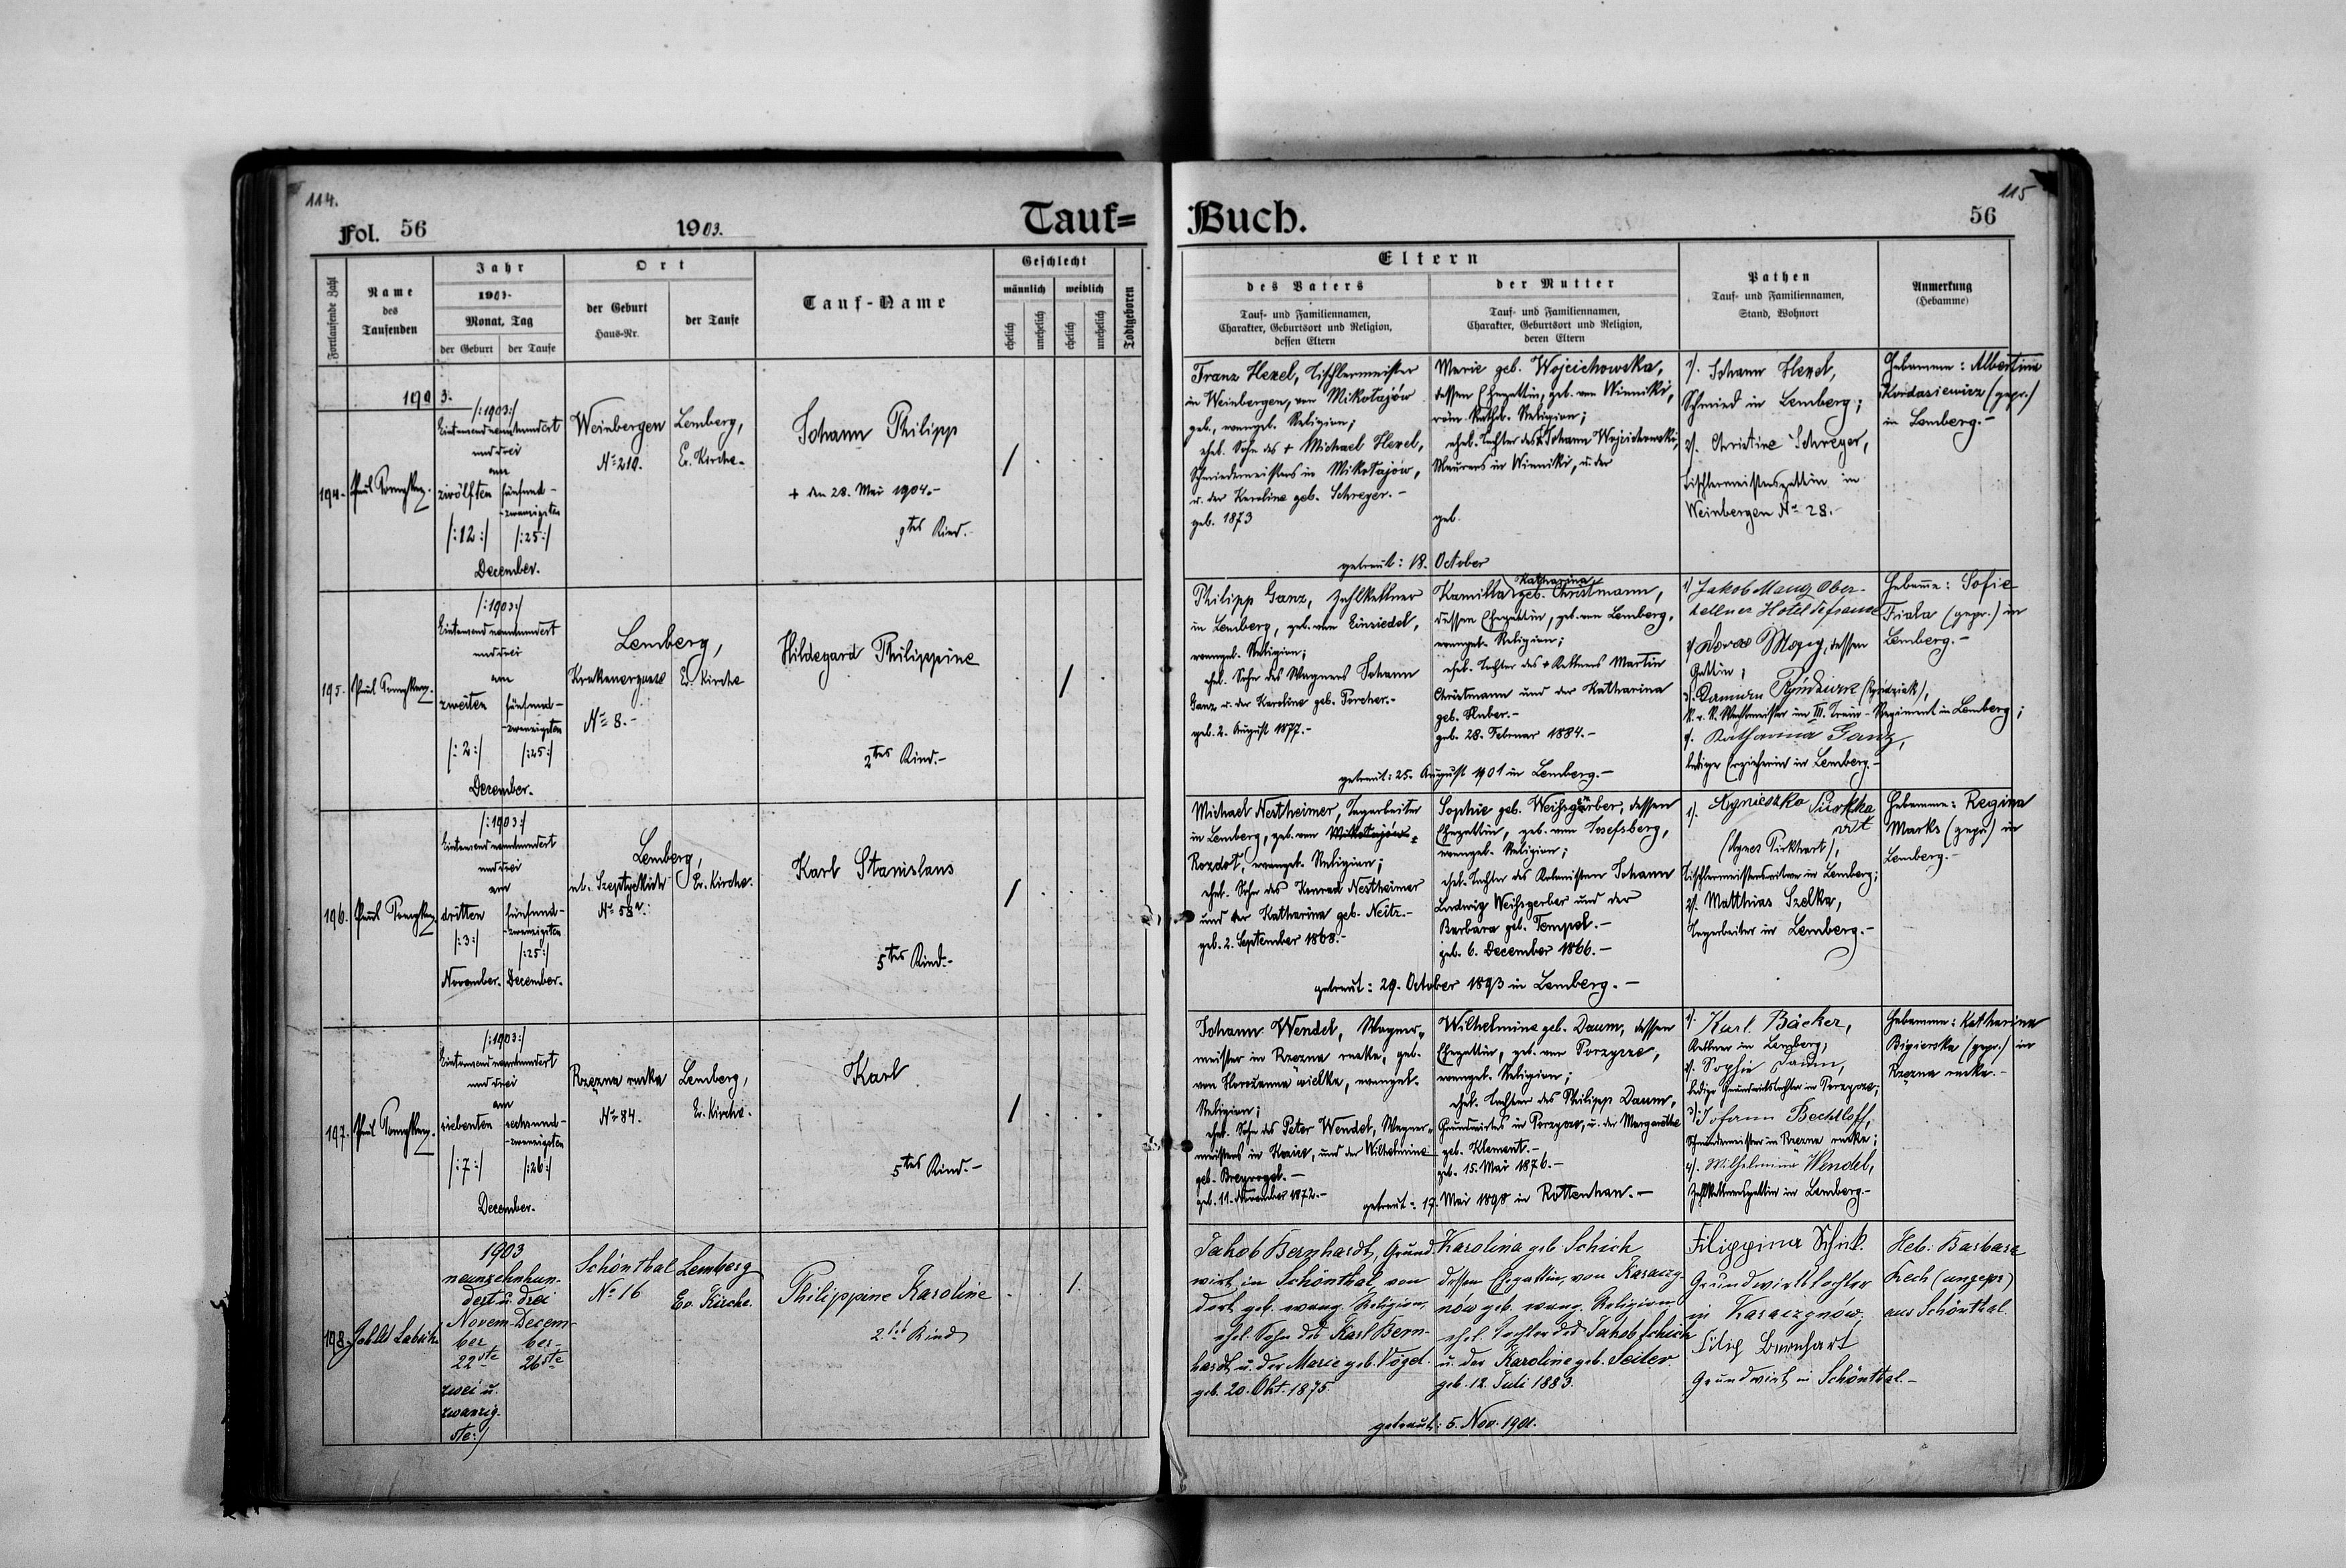 114.
Fol. 56
1903.
Tauf=
Fortlaufende Zahl
Name
des
Taufenden
Jahr
1903.
Monat, Tag
der Geburt
der Taufe
Ort
der Geburt
Haus-Nr.
der Taufe
Tauf-Name
Geschlecht
männlich
weiblich
ehelich
unehelich
ehelich
unehelich
Todtgeboren
1903.
194.
/:1903:/
Eintausend neunhundert
und drei
am
zwölften
fünfund-
-zwanzigsten
/:12:/
/:25:/
December.
Weinbergen
No 210.
Lemberg,
Ev. Kirche.
Johann Philipp
+ den 28. Mai 1904.-
9tes Kind.-
195.
/:1903:/
Eintausend neunhundert
und drei
am
zweiten
fünfund-
-zwanzigsten
/:2:/
/:25:/
Dezember.
Lemberg,
Krakauergasse
No 8.-
Ev. Kirche
Hildegard Philippine
2tes Kind.-
196.
/:1903:/
Eintausend neunhundert
und drei
am
dritten
fünfund-
-zwanzigsten
/:3:/
/:25:/
November.
December.
Lemberg,
ul. Szeptyckich
No 58a.
Ev. Kirche.
Karl Stanislaus
5tes Kind.-
197.
/:1903:/
Eintausend neunhundert
und drei
am
siebenten
sechsund-
-zwanzigsten
/:7:/
/:26:/
December.
Rzęzna ruska
No 84.
Lemberg,
Ev. Kirche.
Karl
5tes Kind.-
198.
1903
neunzehnhun-
dert u. drei
Novem-
ber
22ste
Decem-
ber-
26ste
zwei u.
zwanzig-
ste:/
Schönthal
No 16
Lemberg
Ev. Kirche.
Philippine Karoline
2tes Kind
115
Buch.
56
Eltern
des Vaters
Tauf- und Familiennamen,
Charakter, Geburtsort und Religion,
dessen Eltern
der Mutter
Tauf- und Familiennamen,
Charakter, Geburtsort und Religion,
deren Eltern
Pathen
Tauf- und Familiennamen,
Stand, Wohnort
Anmerkung
(Hebamme)
Franz Hexel, Tischlermeister
in Weinbergen, von Mikołajów
geb., evangel. Religion;
ehel. Sohn des + Michael Hexel,
Schmiedemeisters in Mikołajów,
u. der Karoline geb. Schreyer.-
geb. 1873
Marie geb. Wojcichowska,
dessen Ehegattin, geb. von Winniki,
röm. kathol. Religion;
ehel. Tochter des + Johann Wojcichowski,
Maurers in Winniki, u. der
geb.
getraut: 18. October
1). Johann Hexel,
Schmied in Lemberg;
2). Christine Schreyer,
Tischlermeistersgattin in
Weinbergen No 28.-
Hebamme: Albertine
Kordasiewicz (gepr.)
in Lemberg.-
Philipp Ganz, Zahlkellner
in Lemberg, geb. von Einsiedel,
evangel. Religion;
ehel. Sohn des Wagners Johann
Ganz u. der Karoline geb. Porcher.-
geb. 2. August 1877.-
Katharina
Kamilla geb. Christmann,
dessen Ehegattin, geb. von Lemberg,
evangel. Religion;
ehel. Tochter des + Kellners Martin
Christmann und der Katharina
geb. Huber.-
geb. 28. Februar 1884.-
getraut: 25. August 1901 in Lemberg.-
1) Jakob Maug Ober-
kellner Hotel de france
dessen
Gattin;
k. u. k. Wachtmeister im III. Train-Regiment in Lemberg;
4. Katharina Ganz,
ledige Erzieherin in Lemberg.-
Hebame: Sofie
Fiala (gepr.) in
Lemberg.-
Michael Nestheimer, Tagarbeiter
in Lemberg, geb. von Mikołajów
Rozdoł, evangel. Religion;
ehel. Sohn des Konrad Nestheimer
und der Katharina geb. Neitz.-
geb. 2. September 1868.-
Sophie geb. Weihsgerber, dessen
Ehegattin, geb. von Josefsberg,
evangel. Religion;
ehel. Tochter des Kolonisten Johann
Ludwig Weihsgerber und der
Barbara geb. Tempel.-
geb. 6. December 1866.-
getraut: 29. October 1893 in Lemberg.-
1). Agnieszka
(Agnes Pirkhart),
Tischlermeisterswitwe in Lemberg;
2). Matthias Szelka,
Tagarbeiter in Lemberg.-
Hebamme: Regina
Marks (gepr.) in
Lemberg.-
Johann Wendel, Wagner-
meister in Rzęzna ruska, geb.
von Horożanna wielka, evangel.
Religion;
ehel. Sohn des Peter Wendel, Wagner-
meisters in , und der Wilhelmine
geb. Breyvogel.-
geb. 11. November 1872.-
Wilhelmine geb. Daum, dessen
Ehegattin, geb. von Porzycze,
evangel. Religion;
ehel. Tochter des Philipp Daum,
Grundwirtes in Porzycze, u. der Margarethe
geb. Klement.-
geb. 15. Mai 1876.-
getraut: 17. Mai 1898 in Rottenhan.-
1). Karl Bäcker,
Kellner in Lemberg;
2). Sophie Daum,
ledige Grundwirtstochter in Porzycze;
3). Johann Bechtloff,
Schmiedemeister in Rzezna ruska;
4). Wilhelmine Wendel,
Zahlkellnersgattin in Lemberg.-
Hebamme: Katharina
Bigierska (gepr.) in
Rzęzna ruska.-
Jakob Bernhardt, Grund-
wirt in Schönthal von
dort geb. evang. Religion,
ehel. Sohn des Karl Bern-
hardt u. der Marie geb. Vogel.
geb. 20. Okt. 1875.
Karolina geb Schick
dessen Ehegattin, von Karaczy-
nów geb. evang. Religion
ehel. Tochter des Jakob Schick
u. der Karoline geb. Seiler
geb. 12. Juli 1883.
getraut: 5. Nov. 1901.
Filippina Schick
Grundwirtstochter
in Karaczynów.
Filip Bernhart
Grundwirt in Schönthal.-
Heb: Barbara
Kech (ungepr)
aus Schönthal.